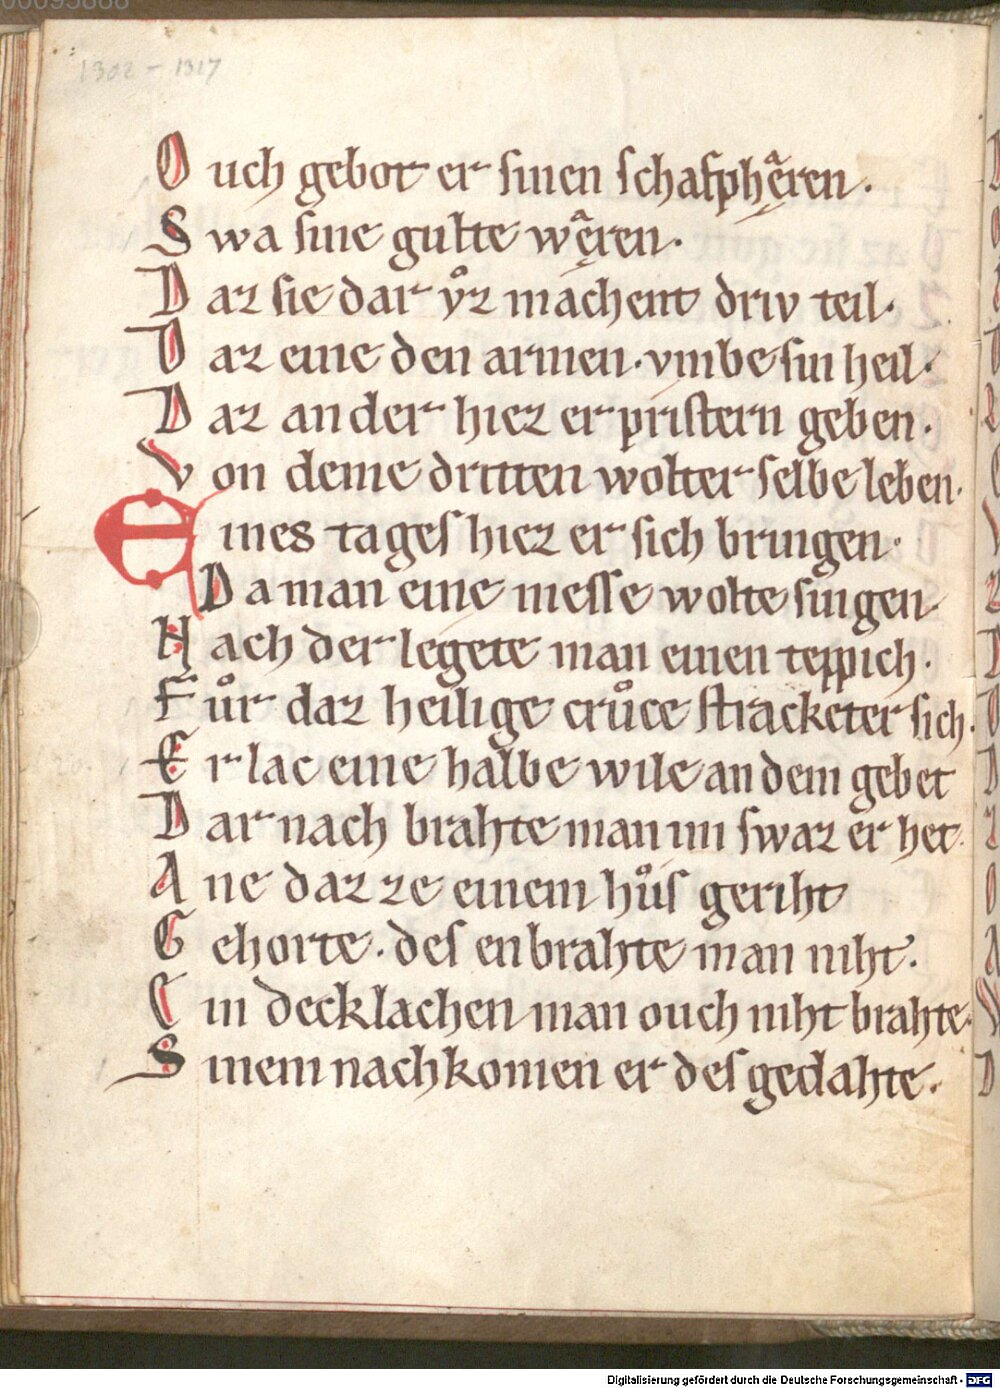 1302 - 1317
Ouch gebot er sinen schafphęren.
Swa sine gulte węren.
Daz sie dar vͦz machent driv teil.
Daz eine den armen. vmbe sin heil.
Daz ander hiez er pristern geben.
Von deme dritten wolter selbe leben.
Eines tages hiez er sich bringen.
Da man eine messe wolte singen.
Nach der legete man einen teppich.
Fuͦr daz heilige cruͦce stracketer sich.
Er lac eine halbe wile an dem gebet
Dar nach brahte man im swaz er het.
Ane daz ze einem huͦs geriht
Gehorte. des enbrahte man niht.
Ein decklachen man ouch niht brahte.
Sinem nachkomen er des gedahte.
Digitalisierung gefördert durch die Deutsche Forschungsgemeinschaft - DFG